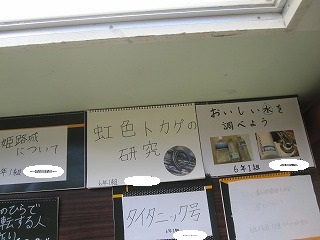 姫路城
について
6年1組
虹色トカゲの
研究
6年1組
おいしい水を
調べよう
6年1組
のひらで
転する人
タイタニック号
6年1組